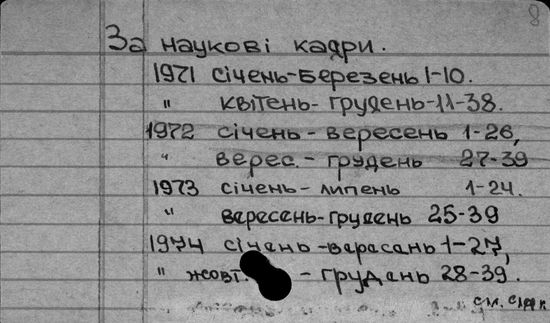 8
За наукові кадри.
1971 січень-березень 1-10.
" квітень-грудень-11-38.
1972 січень-вересень 1-26,
" верес.-грудень 27-39
1973 січень-липень 1-24.
" вересень-грудень 25-39
1974 січень-вересень 1-27,
" жовт. - грудень 28-39.
см.